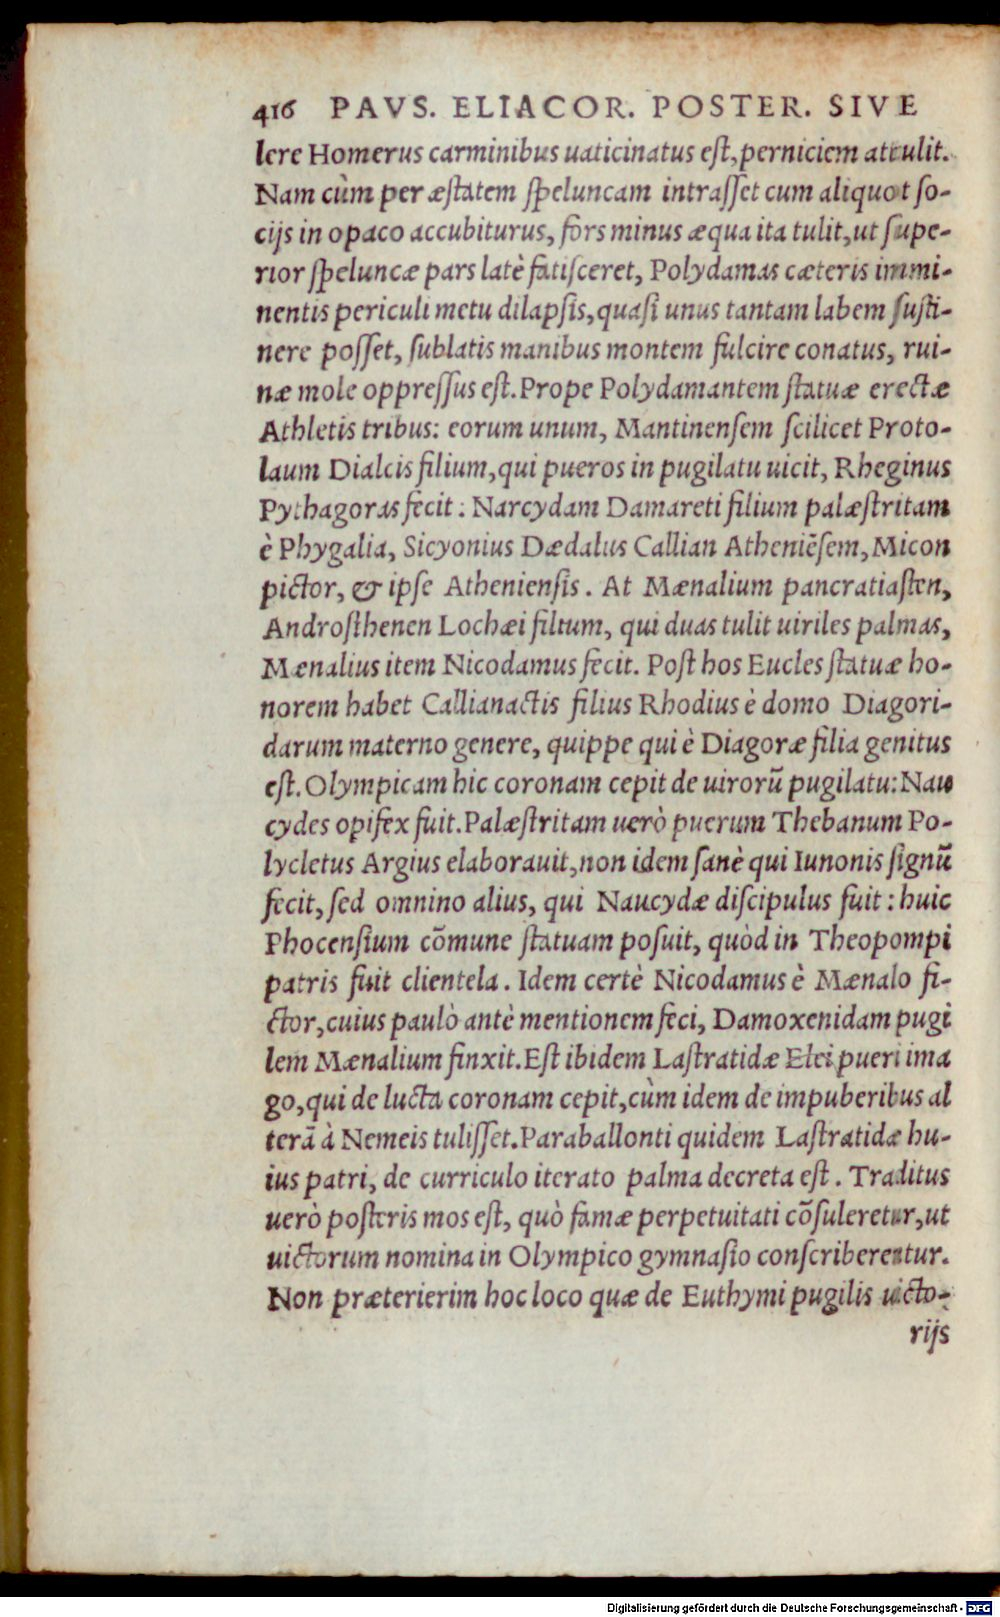 416 PAVS. ELIACOR. POSTER. SIVE
lere Homerus carminibus uaticinatus eſt, perniciem attulit.
Nam cùm per æſtatem ſpeluncam intraſſet cum aliquot ſo-
cijs in opaco accubiturus, fors minus æqua ita tulit, ut ſupe-
rior ſpeluncæ pars latè fatiſceret, Polydamas cæteris immi-
nentis periculi metu dilapſis, quaſi unus tantam labem ſuſti-
nere poſſet, ſublatis manibus montem fulcire conatus, rui-
næ mole oppreſſus eſt. Prope Polydamantem ſtatuæ erectæ
Athletis tribus: eorum unum, Mantinenſem ſcilicet Proto-
laum Dialcis filium, qui pueros in pugilatu uicit, Rheginus
Pythagoras fecit: Narcydam Damareti filium palæſtritam
è Phygalia, Sicyonius Dædalus Callian Atheniẽſem, Micon
pictor, & ipſe Athenienſis. At Mænalium pancratiaſten,
Androſthenen Lochæi filium, qui duas tulit uiriles palmas,
Mænalius item Nicodamus fecit. Poſt hos Eucles ſtatuæ ho-
norem habet Callianactis filius Rhodius è domo Diagori-
darum materno genere, quippe qui è Diagoræ filia genitus
eſt. Olympicam hic coronam cepit de uirorũ pugilatu: Nau
cydes opifex fuit. Palæſtritam uerò puerum Thebanum Po-
lycletus Argius elaborauit, non idem ſanè qui Iunonis ſignũ
fecit, ſed omnino alius, qui Naucydæ diſcipulus fuit: huic
Phocenſium cõmune ſtatuam poſuit, quòd in Theopompi
patris fuit clientela. Idem certè Nicodamus è Mænalo fi-
ctor, cuius paulò antè mentionem feci, Damoxenidam pugi
lem Mænalium finxit. Eſt ibidem Laſtratidæ Elei pueri ima
go, qui de lucta coronam cepit, cùm idem de impuberibus al
terã à Nemeis tuliſſet. Paraballonti quidem Laſtratidæ hu-
ius patri, de curriculo iterato palma decreta eſt. Traditus
uerò poſteris mos eſt, quò famæ perpetuitati cõſuleretur, ut
uictorum nomina in Olympico gymnaſio conſcriberentur.
Non præterierim hoc loco quæ de Euthymi pugilis uicto-
rijs
Digitalisierung gefördert durch die Deutsche Forschungsgemeinschaft - DFG